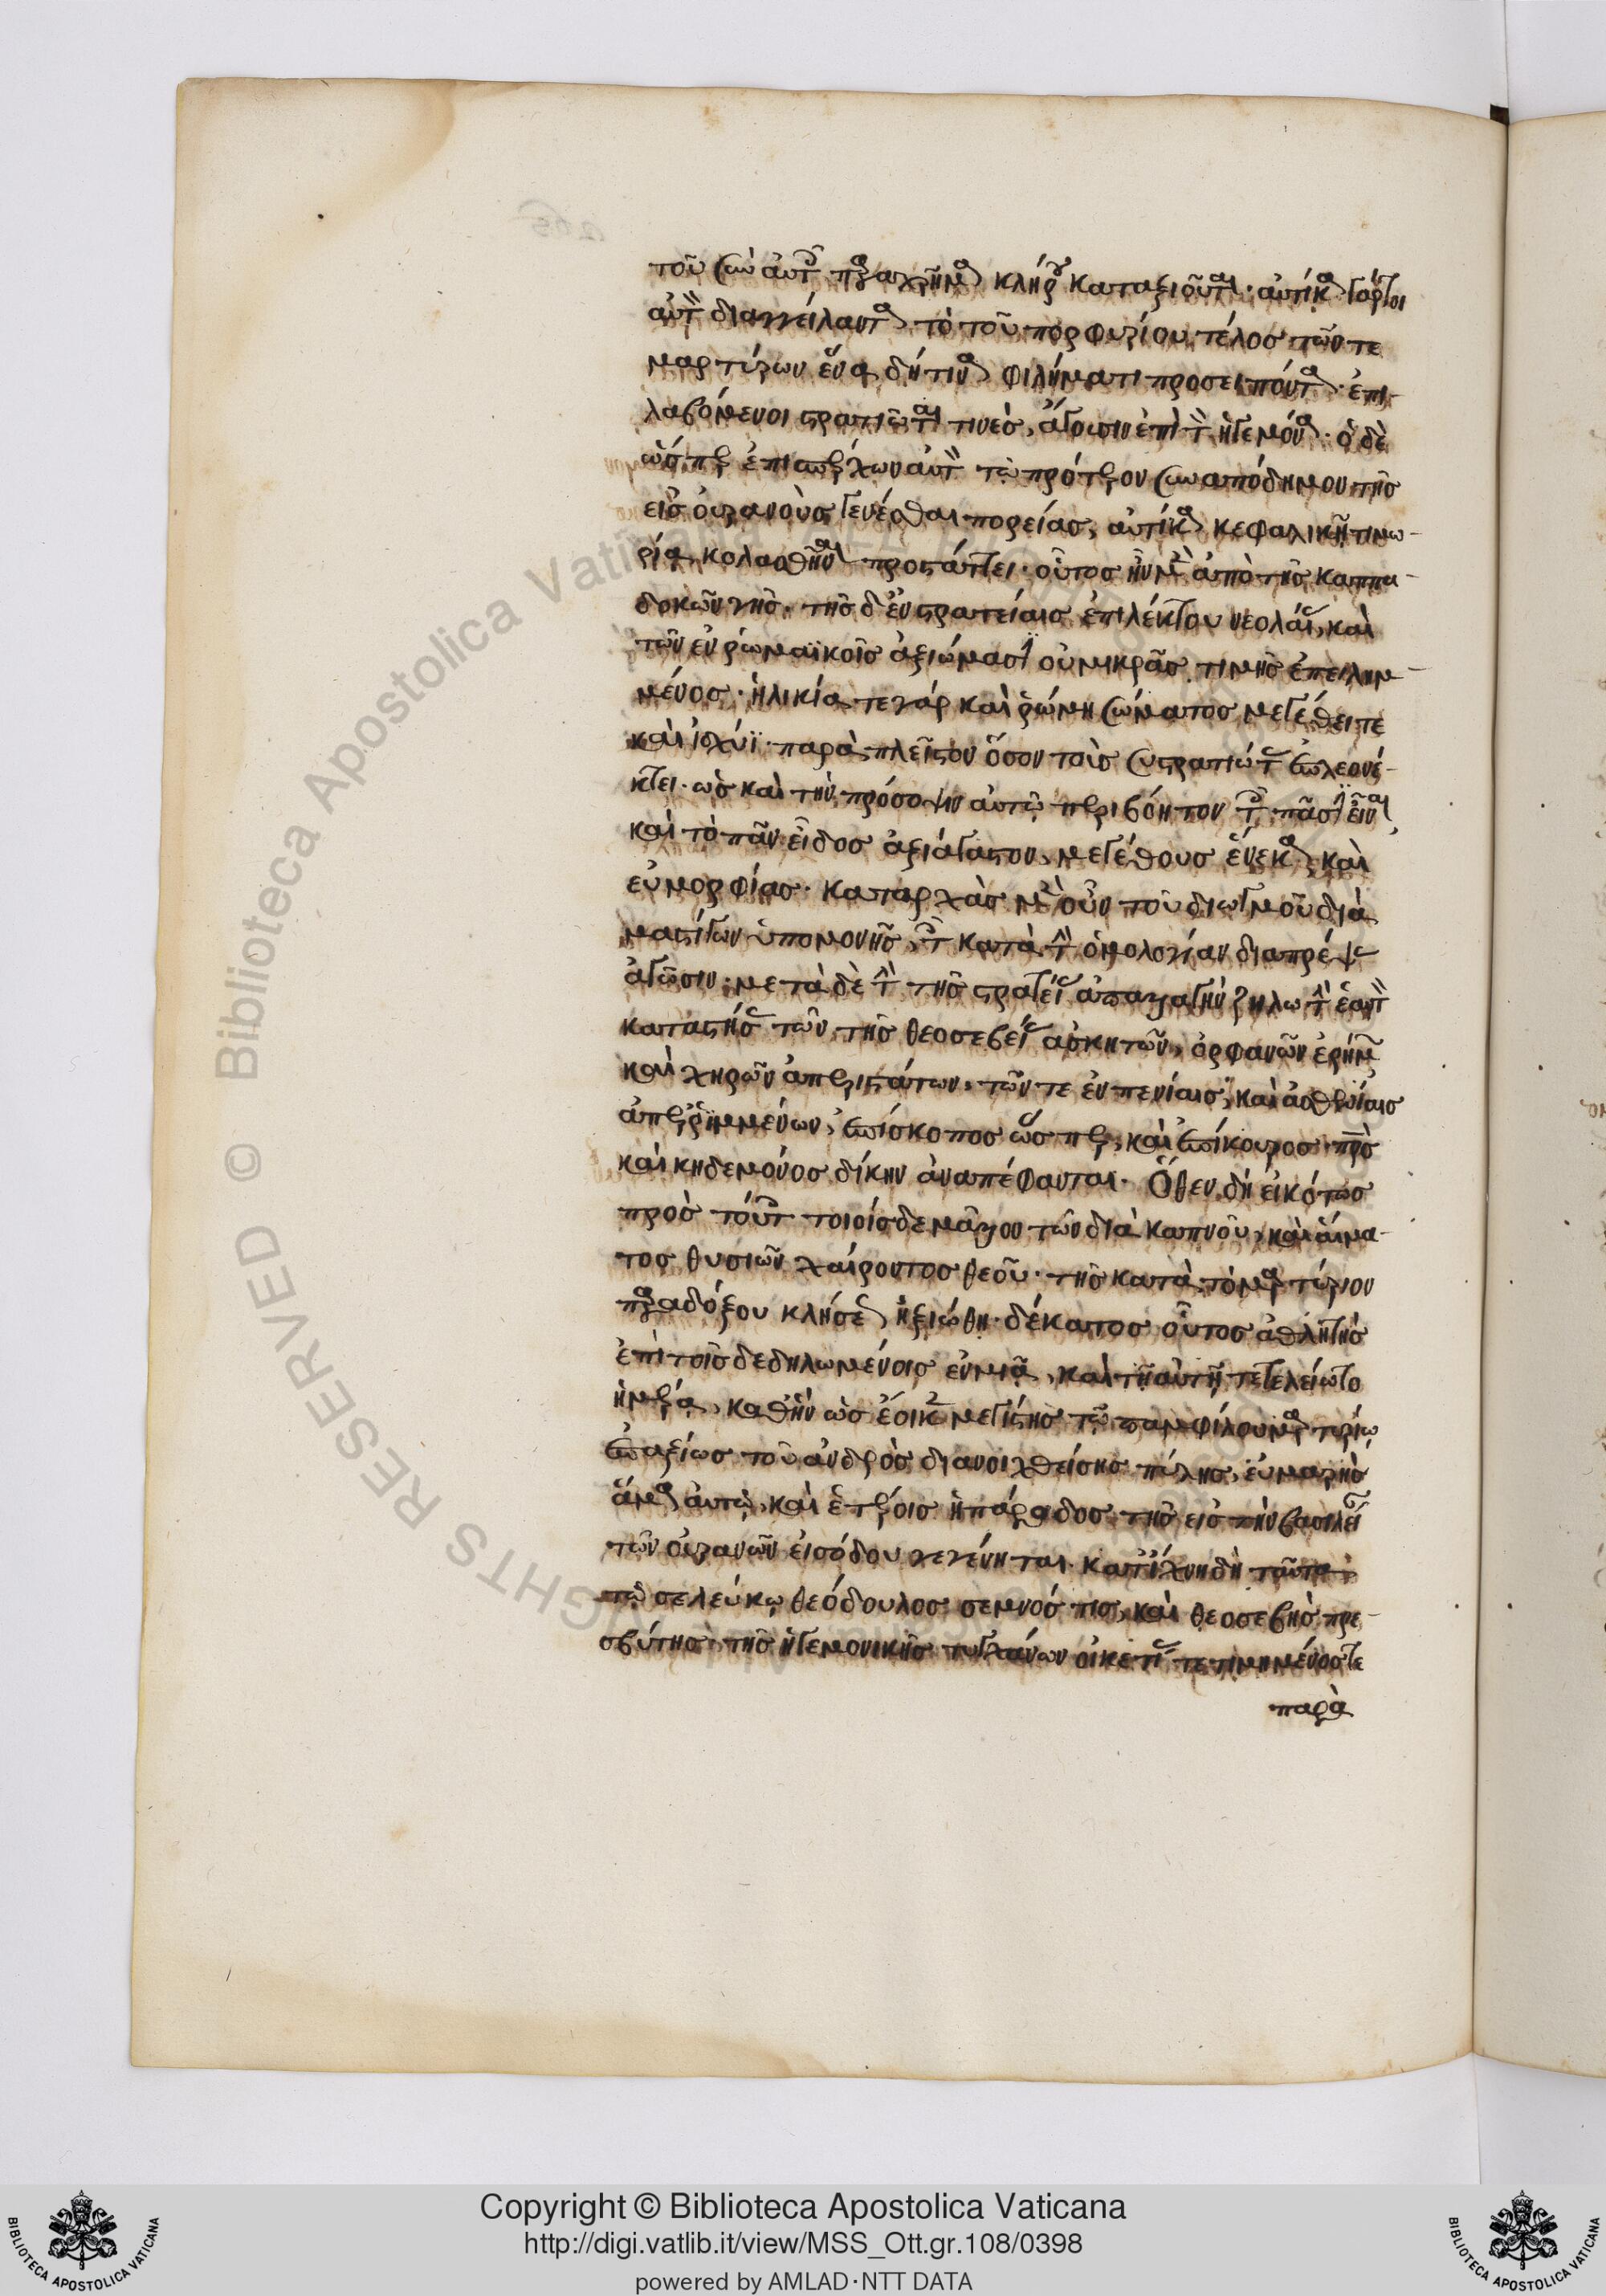 τοῦ σὺν αὐτοῦ παραχρῆμα κλήρου καταξιοῦται· αὐτίκα γάρτοι
αὐτὸν διαγγείλαντα τὸ τοῦ πορφυρίου τέλος τῶν τε
μαρτύρων ἕνα δήτινα φιλήματι προσειπόντα· ἐπι-
λαβόμενοι στρατιῶται τινὲς, ἄγουσιν ἐπὶ τὸν ἡγεμόνα· ὁ δὲ
ὥσπερ ἐπισπέρχων αὐτὸν τῷ πρότερον συναπόδημον τῆς
εἰς οὐρανοὺς γενέσθαι πορείας, αὐτίκα κεφαλικῇ τιμω-
ρίᾳ κολασθῆναι προστάττει· οὗτος ἦν μὲν ἀπὸ τῆς καππα-
δοκῶν γῆς· τῆς δ' ἐν στρατείαις ἐπιλέκτου νεολαίας, καὶ
τῶν ἐν ῥωμαϊκοῖς ἀξιώμασιν οὐ μικρᾶς τιμῆς ἐπειλημ-
μένος· ἡλικία τε γάρ καὶ ῥώμη σώματος μεγέθει τε
καὶ ἰσχύϊ παρὰ πλεῖστον ὅσον τοῖς συστρατιώτας ἐπλεονέ-
κτει· ὡς καὶ τὴν πρόσοψιν αὐτῷ περιβόητον τοῖς πᾶσιν εἶναι
καὶ τὸ πᾶν εἶδος ἀξιάγαστον, μεγέθους ἕνεκα, καὶ
εὐμορφίας. καταρχὰς μὲν οὖν τοῦ διωγμοῦ διὰ
μαστίγων ὑπομονῆς, τοῖς κατὰ τὴν ὁμολογίαν διαπρέψας
ἀγῶσιν· μετὰ δὲ τὴν τῆς στρατείας ἀπαλλαγὴν ζηλωτὴν ἑαυτὸν
καταστήσας τῶν τῆς θεοσεβείας ἀσκητῶν, ὀρφανῶν ἐρήμων
καὶ χηρῶν ἀπεριστάτων, τῶν τε ἐν πενίαις, καὶ ἀσθενείαις
ἀπερριμμένων, ἐπίσκοπος ὥσπερ, καὶ ἐπίκουρος πατρὸς
καὶ κηδεμόνος δίκην ἀναπέφανται. Ὅθεν δὴ εἰκότως
πρὸς τούτοις τοιοῖσδε μᾶλλον τῶν διὰ καπνοῦ, καὶ αἵμα-
τος θυσιῶν χαίροντος θεοῦ· τῆς κατὰ τὸ μαρτύριον
παραδόξου κλήσεως ἠξιώθη· δέκατος οὗτος ἀθλητὴς
ἐπὶ τοῖς δεδηλωμένοις ἐν μιᾷ, καὶ τῇ αὐτῇ τετελείωτο
ἡμέρᾳ, καθ' ἣν ὡς ἔοικε μεγίστης τῷ παμφίλου μαρτυρίῳ
ἐπαξίως τοῦ ἀνδρὸς διανοιχθείσης πύλης, εὐμαρὴς
ἅμα αὐτῷ, καὶ ἑτέροις ἡ πάροδος τῆς εἰς τὴν βασιλείαν
τῶν οὐρανῶν εἰσόδου γεγένηται. κατ' ἴχνη δὴ ταῦτα
τῷ σελεύκῳ θεόδουλος σεμνός τις, καὶ θεοσεβὴς πρε-
σβύτης τῆς ἡγεμονικῆς τυγχάνων οἰκετίας τετιμημένος τε
παρὰ